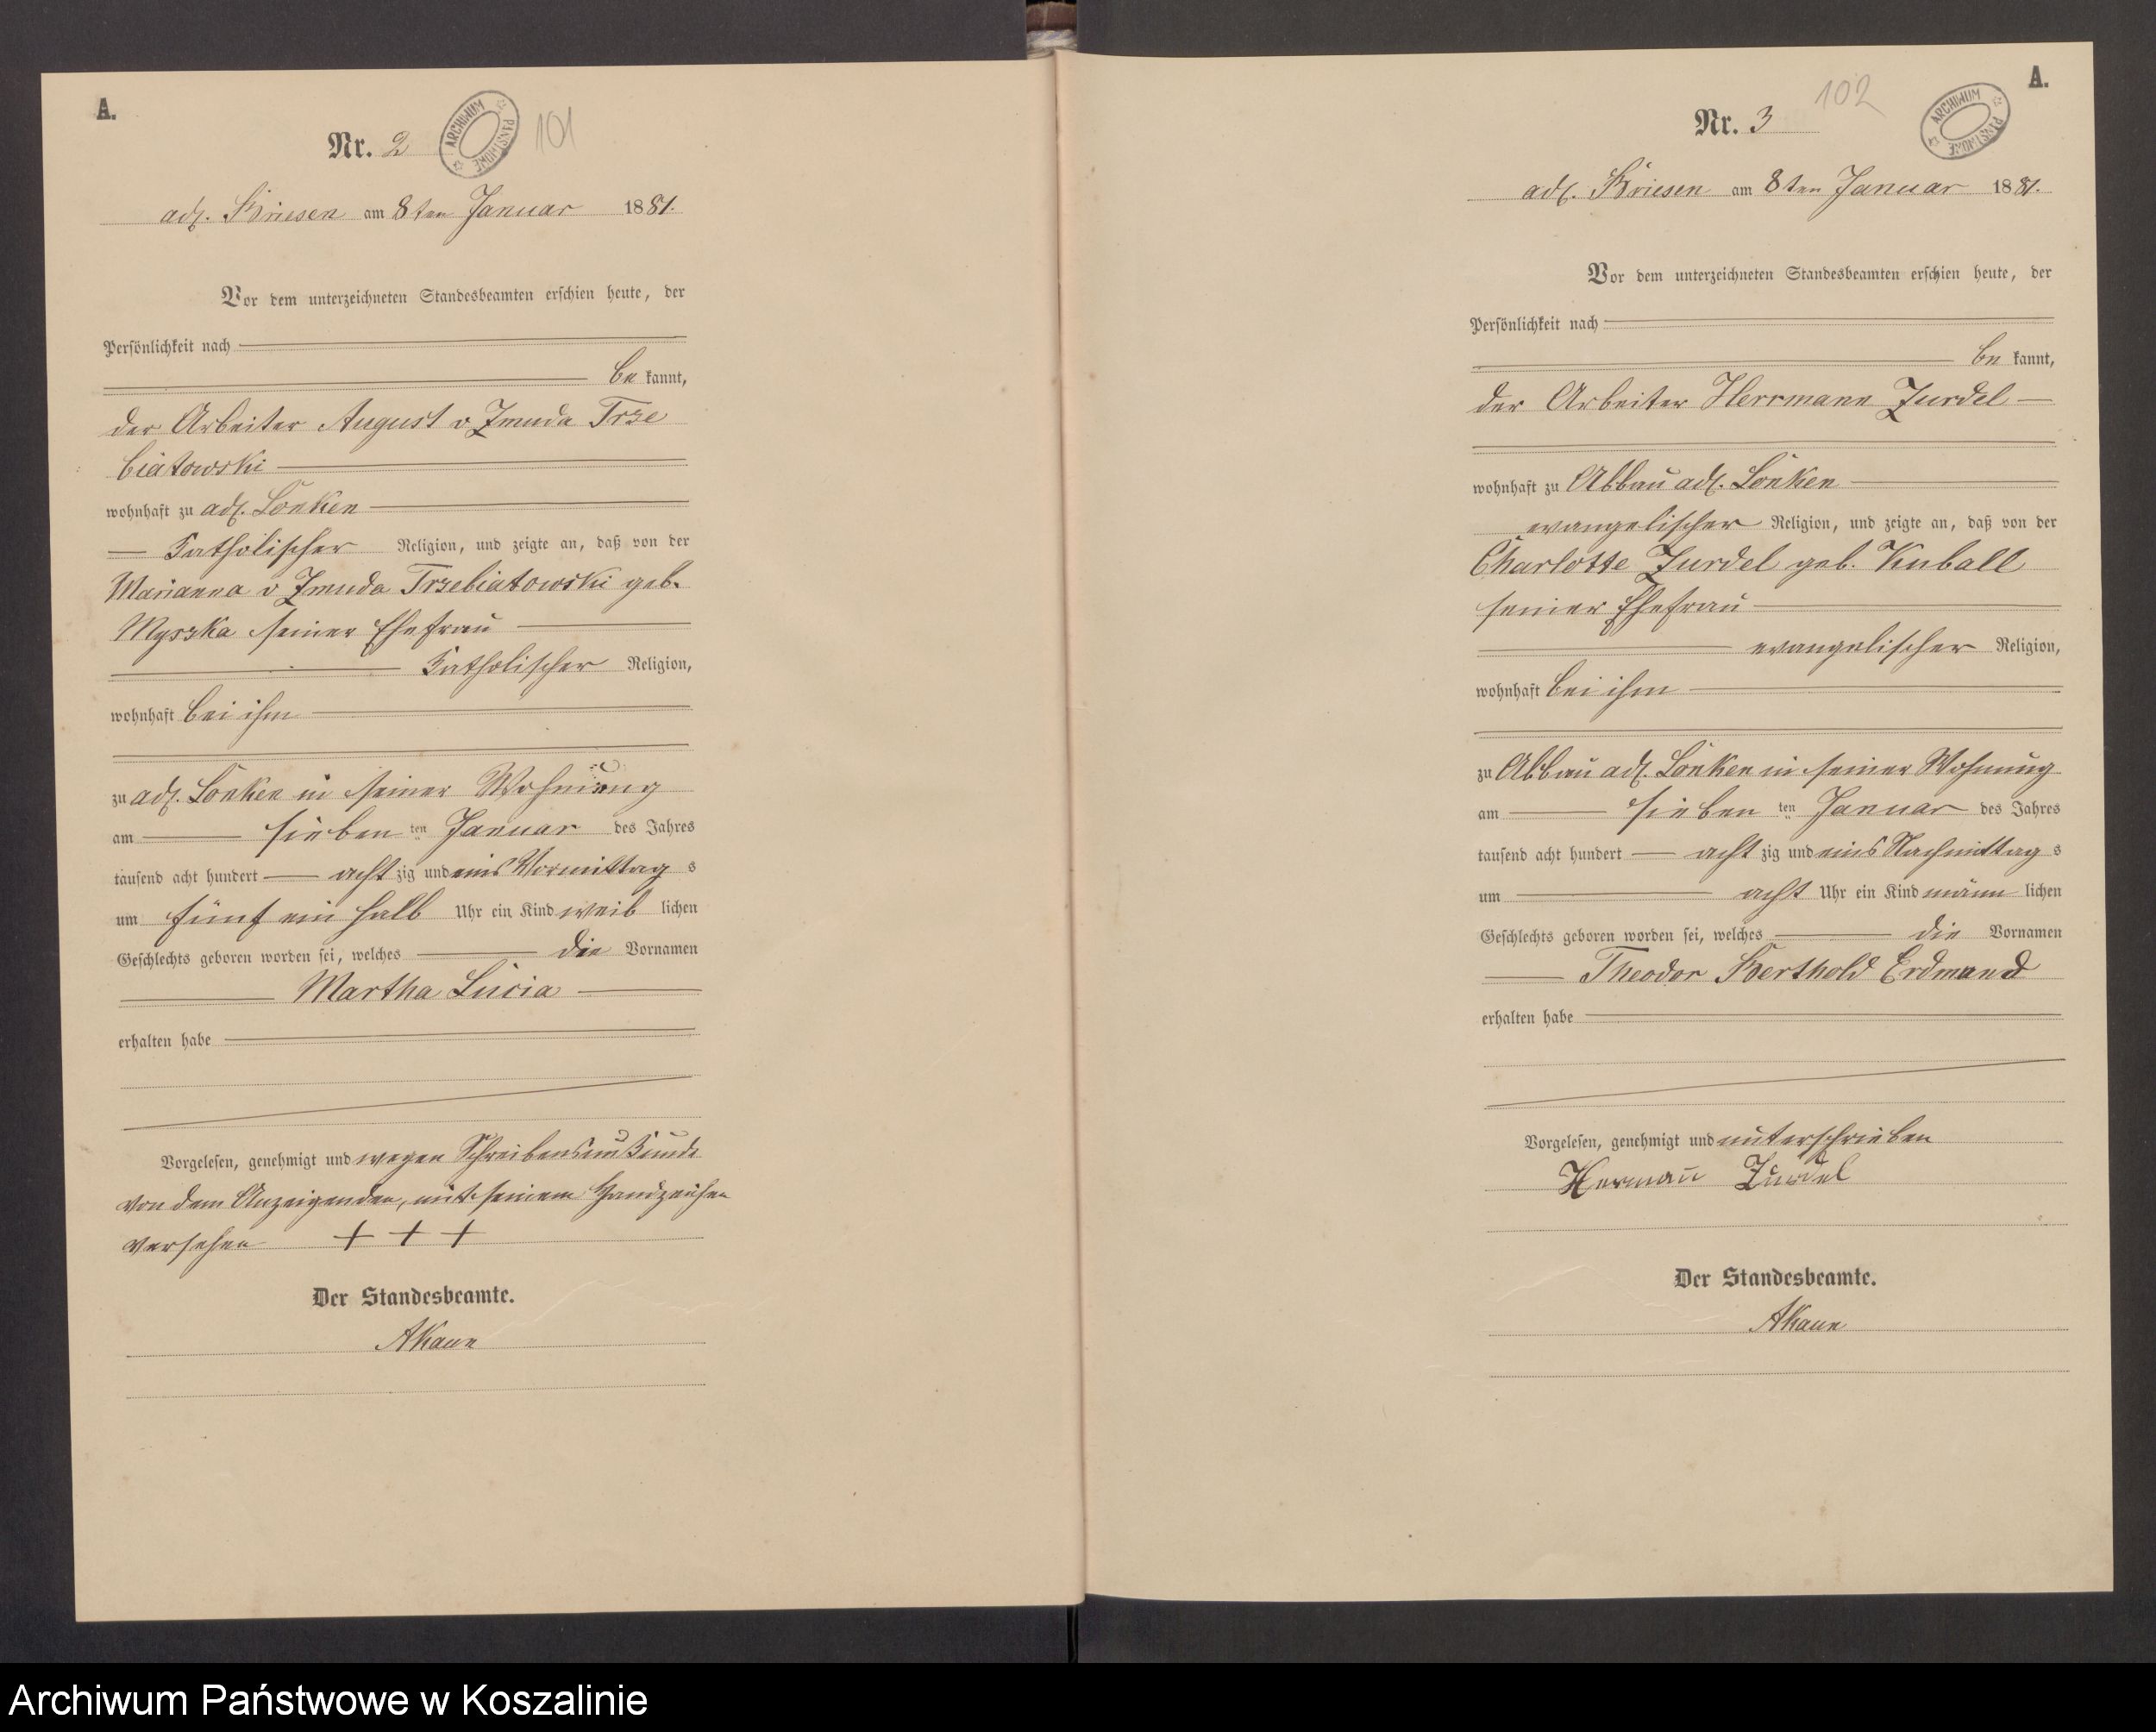 A.
Nr. 2
ARCHIWUM PAŃSTWOWE
101
adl. Briesen am 8ten Januar 1881.
Vor dem unterzeichneten Standesbeamten erschien heute, der
Persönlichkeit nach
be kannt,
der Arbeiter August v Zmuda Trze
biatowski
wohnhaft zu adl. Lonken
katholischer Religion, und zeigte an, daß von der
Marianna v Zmuda Trzebiatowski geb.
Myszka seiner Ehefrau
katholischer Religion,
wohnhaft bei ihm
zu adl. Lonken in seiner Wohnung
am sieben ten Januar des Jahres
tausend acht hundert acht zig und eins Vormittag s
um fünf ein halb Uhr ein Kind weib lichen
Geschlechts geboren worden sei, welches die Vornamen
Martha Lucia
erhalten habe
Vorgelesen, genehmigt und wegen Schreibensunkunde
von dem Anzeigenden, mit seinem Handzeichen
versehen + + +
Der Standesbeamte.
AKaun
A.
102
Nr. 3
ARCHIWUM PAŃSTWOWE
adl. Briesen am 8ten Januar 1881.
Vor dem unterzeichneten Standesbeamten erschien heute, der
Persönlichkeit nach
be kannt,
der Arbeiter Herrmann Zurdel
wohnhaft zu Abbau adl. Lonken
evangelischer Religion, und zeigte an, daß von der
Charlotte Zurdel geb. Kuball
seiner Ehefrau
evangelischer Religion,
wohnhaft bei ihm
zu Abbau adl. Lonken in seiner Wohnung
am sieben ten Januar des Jahres
tausend acht hundert acht zig und eins Nachmittag s
um acht Uhr ein Kind männ lichen
Geschlechts geboren worden sei, welches die Vornamen
Theodor Berthold Erdmand
erhalten habe
Vorgelesen, genehmigt und unterschrieben
Hermann Zurdel
Der Standesbeamte.
AKaun
Archiwum Państwowe w Koszalinie